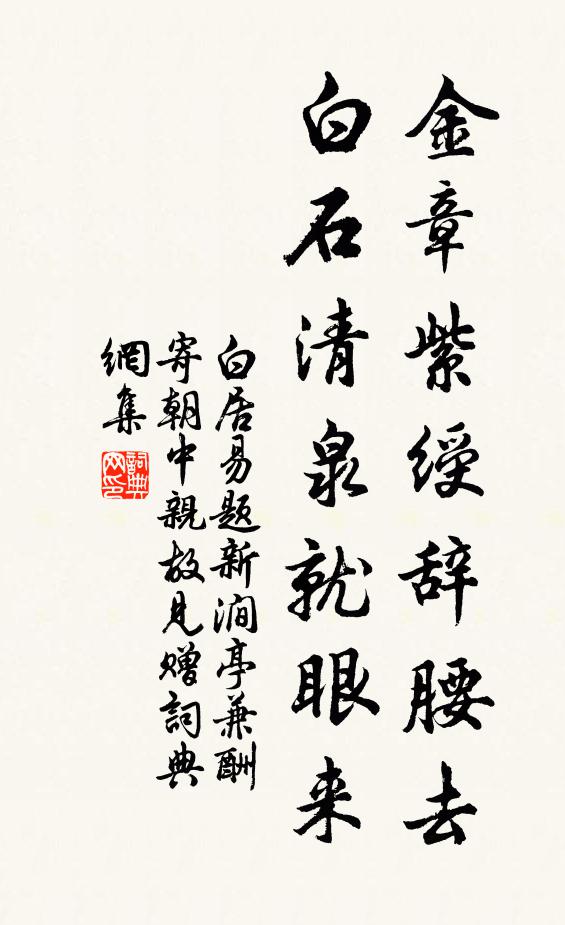 金章紫綬辞腰去
白石清泉就眼来
白居易题新澗亭兼酬
寄朝中親故見赠詞典
網集
詞典
网印